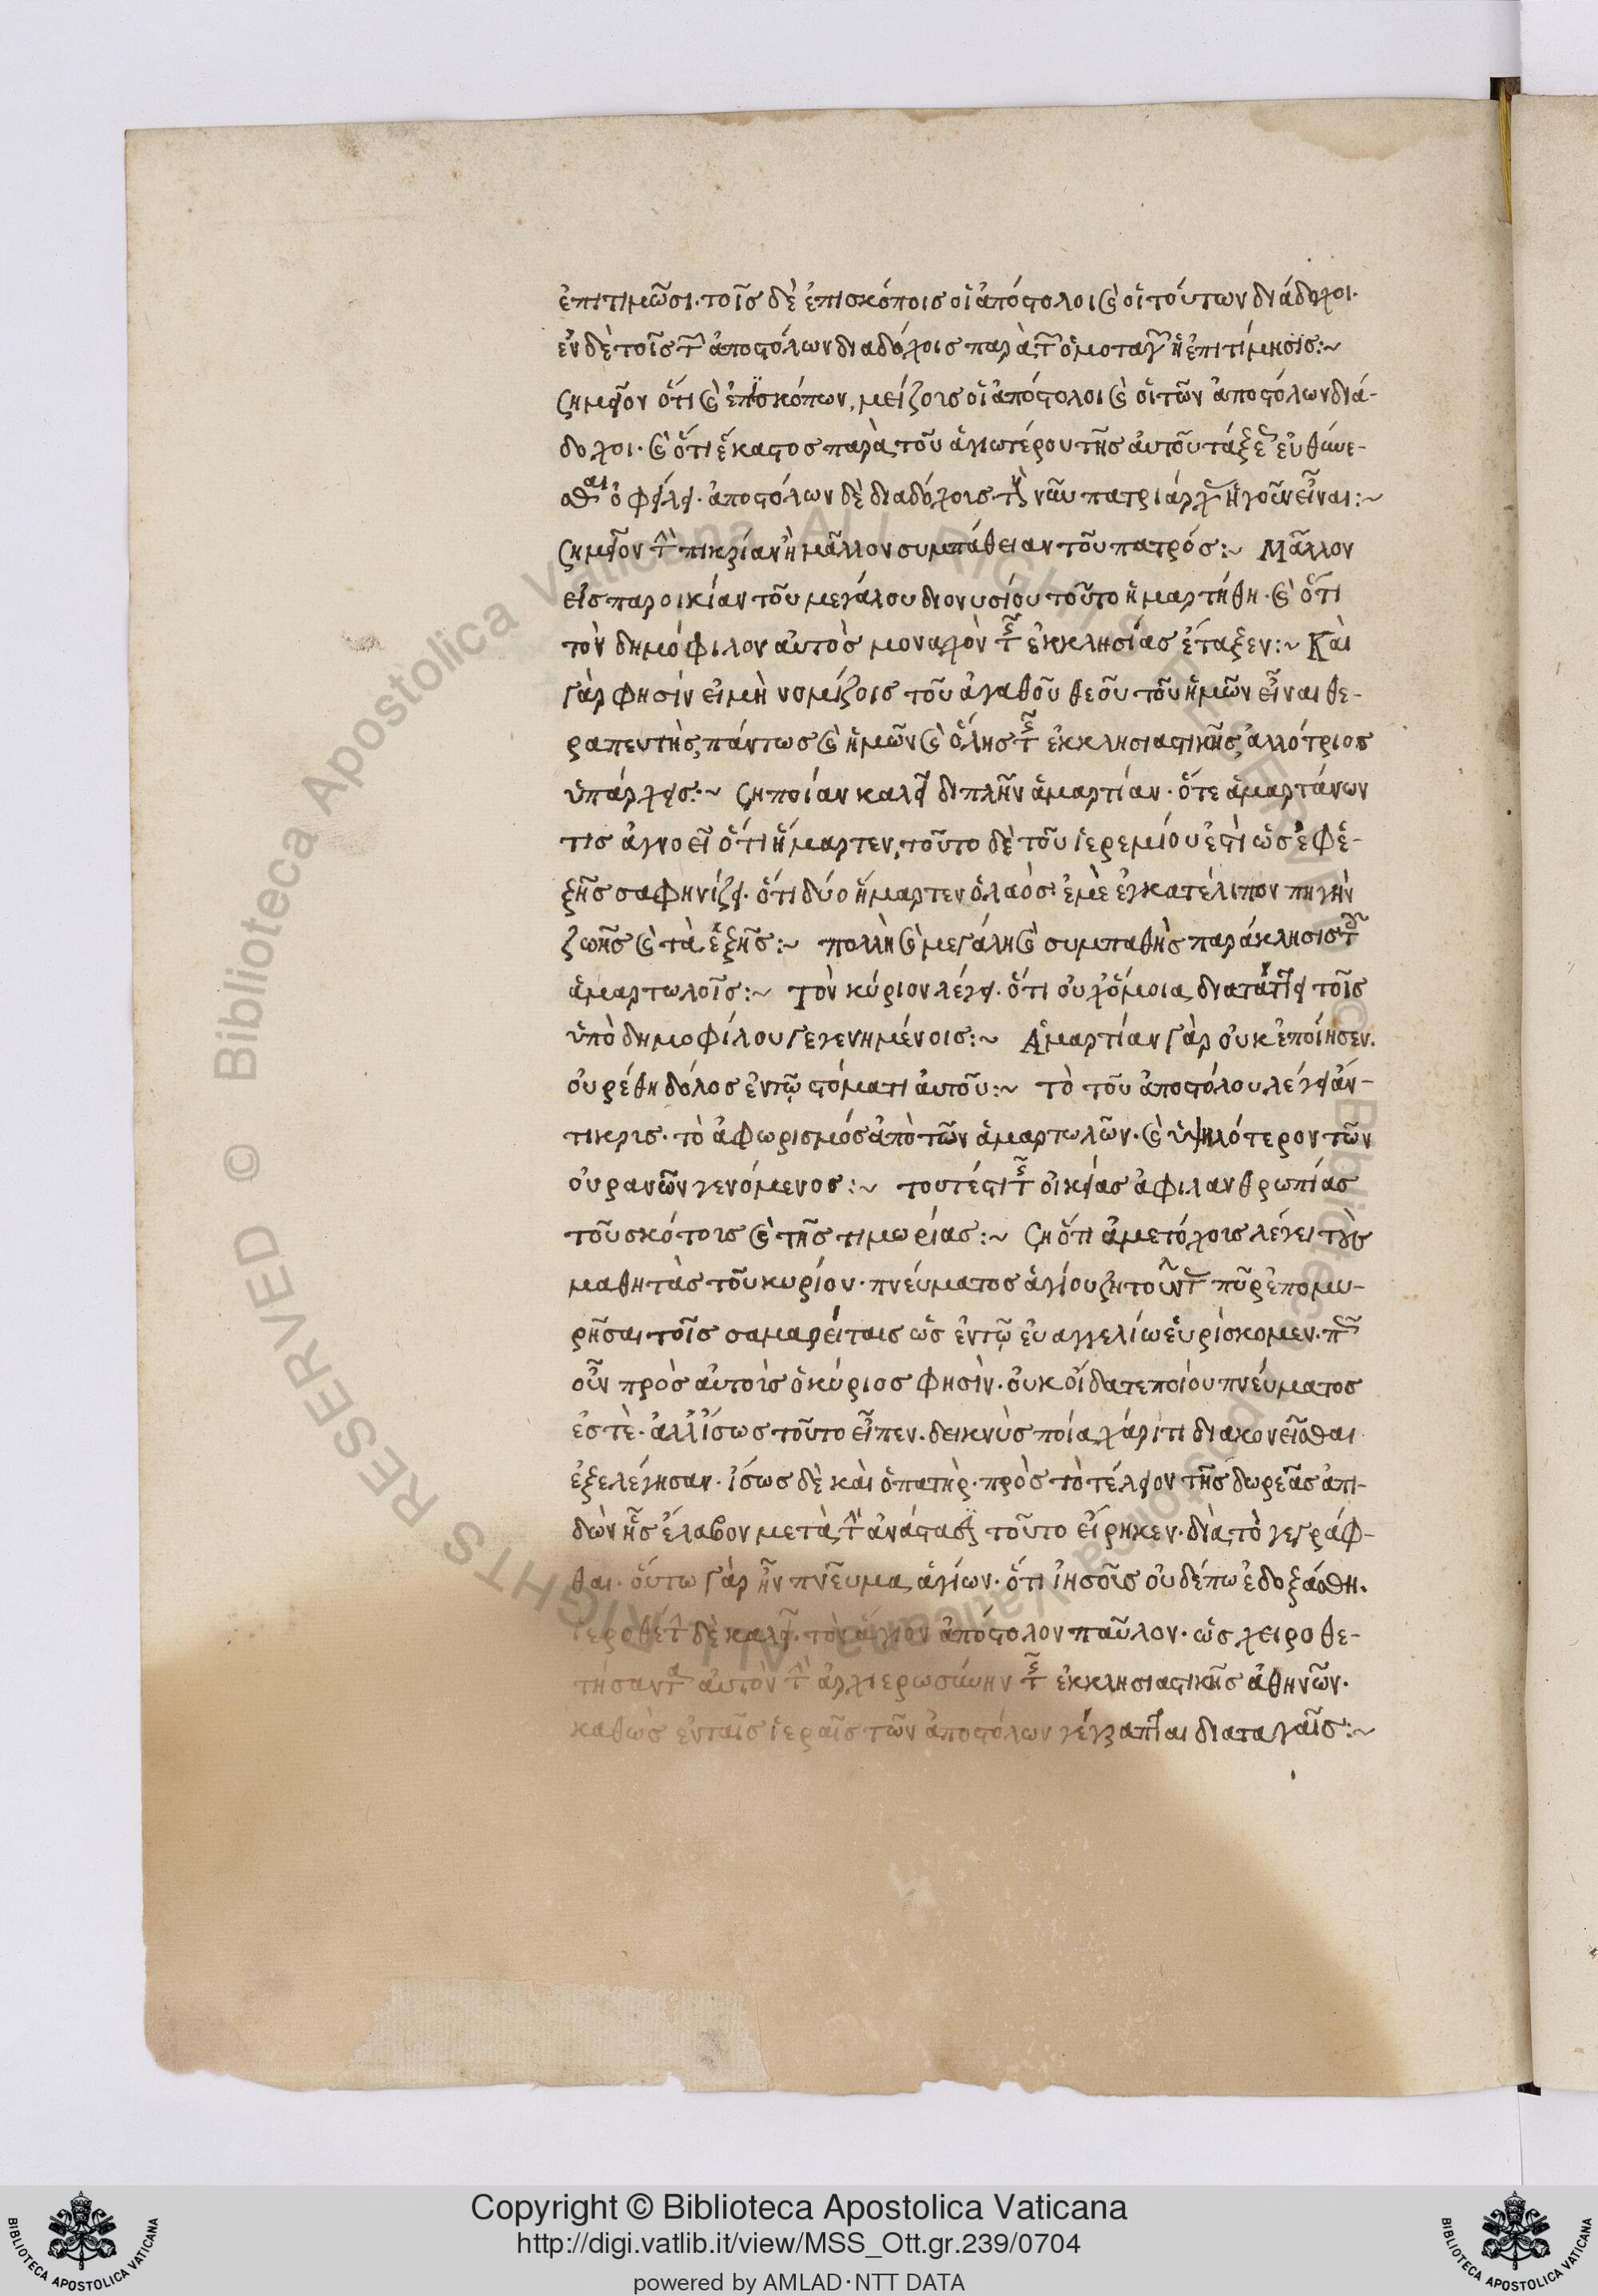 ἐπιτιμῶσι· τοῖς δὲ ἐπισκόποις οἱ ἀπόστολοι καὶ οἱ τούτων διάδοχοι·
ἐν δὲ τοῖς τῶν ἀποστόλων διαδόχοις παρὰ τῶν ὁμοταγῶν ἡ ἐπιτίμησις:~
Σημεῖον ὅτι καὶ ἐπισκόπων, μείζους οἱ ἀπόστολοι καὶ οἱ τῶν ἀποστόλων διά-
δοχοι· καὶ ὅτι ἕκαστος παρὰ τοῦ ἁγιωτέρου τῆς αὐτοῦ τάξεως εὐθύνε-
σθαι ὀφείλει· ἀποστόλων δὲ διαδόχους τοὺς νῦν πατριάρχας ἡγοῦν εἶναι:~
Σημεῖον τὴν πικρίαν ἢ μᾶλλον συμπάθειαν τοῦ πατρός:~ Μᾶλλον
εἰς παροικίαν τοῦ μεγάλου διονυσίου τοῦτο ἡμαρτήθη· καὶ ὅτι
τὸν δημόφιλον αὐτὸς μοναχὸν τῆς ἐκκλησίας ἔταξεν:~ Καὶ
γάρ φησιν εἰ μὴ νομίζοις τοῦ ἀγαθοῦ θεοῦ τοῦ ἡμῶν εἶναι θε-
ραπευτὴς, πάντως καὶ ἡμῶν καὶ ὅλης τῆς ἐκκλησιαστικῆς ἀλλότριος
ὑπάρχεις:~ Ση ποίαν καλεῖ διπλῆν ἁμαρτίαν· ὅτε ἁμαρτάνων
τις ἀγνοεῖ ὅτι ἥμαρτεν, τοῦτο δὲ τοῦ ἱερεμίου ἐστὶ ὡς ἐφε-
ξῆς σαφηνίζει· ὅτι δύο ἥμαρτεν ὁ λαός· ἐμὲ ἐγκατέλιπον πηγὴν
ζωῆς καὶ τὰ ἑξῆς:~ πολλὴ καὶ μεγάλη καὶ συμπαθὴς παράκλησις τοῖς
ἁμαρτωλοῖς:~ Τὸν κύριον λέγει· ὅτι οὐχ ὅμοια διατάττει τοῖς
ὑπὸ δημοφίλου γεγενημένοις:~ Ἁμαρτίαν γὰρ οὐκ ἐποίησεν.
οὑρέθη δόλος ἐν τῷ στόματι αὐτοῦ:~ τὸ τοῦ ἀποστόλου λέγει ἄν-
τικρις· τὸ ἀφωρισμός ἀπὸ τῶν ἁμαρτωλῶν· καὶ ὑψηλότερον τῶν
οὐρανῶν γενόμενος:~ τουτέστι τῆς οἰκείας ἀφιλανθρωπίας
τοῦ σκότους καὶ τῆς τιμωρίας:~ Ση ὅτι ἀμετόχους λέγει τοὺς
μαθητὰς τοῦ κυρίου· πνεύματος ἁγίου ζητοῦντας πῦρ ἐπομυ-
ρῆσαι τοῖς σαμαρείταις ὡς ἐν τῷ εὐαγγελίω εὑρίσκομεν· πῶς
οὖν πρὸς αὐτοὺς ὁ κύριος φησὶν· οὐκ οἴδατε ποίου πνεύματος
ἐστὲ· ἀλλ' ἴσως τοῦτο εἶπεν· δεικνὺς ποία χάριτι διακονεῖσθαι
ἐξελέγησαν· ἴσως δὲ καὶ ὁ πατὴρ· πρὸς τὸ τέλειον τῆς δωρεᾶς ἀπι-
δὼν ἧς ἔλαβον μετὰ τὴν ἀνάστασιν τοῦτο εἴρηκεν· διὰ τὸ γεγράφ-
θαι· οὕτω γὰρ ἦν πνεῦμα ἁγίων· ὅτι ἰησοῦς οὐδέπω ἐδοξάσθη.
Ἱερόθεον δὲ καλεῖ· τὸν ἅγιον ἀπόστολον παῦλον· ὡς χειροθε-
τήσαντα αὐτὸν τὴν ἀρχιερωσύνην τῆς ἐκκλησιαστικῆς ἀθηνῶν·
καθὼς ἐν ταῖς ἱεραῖς τῶν ἀποστόλων γέγραπται διαταγαῖς:~
Copyright © Biblioteca Apostolica Vaticana
http://digi.vatlib.it/view/MSS_Ott.gr.239/0704
powered by AMLAD·NTT DATA